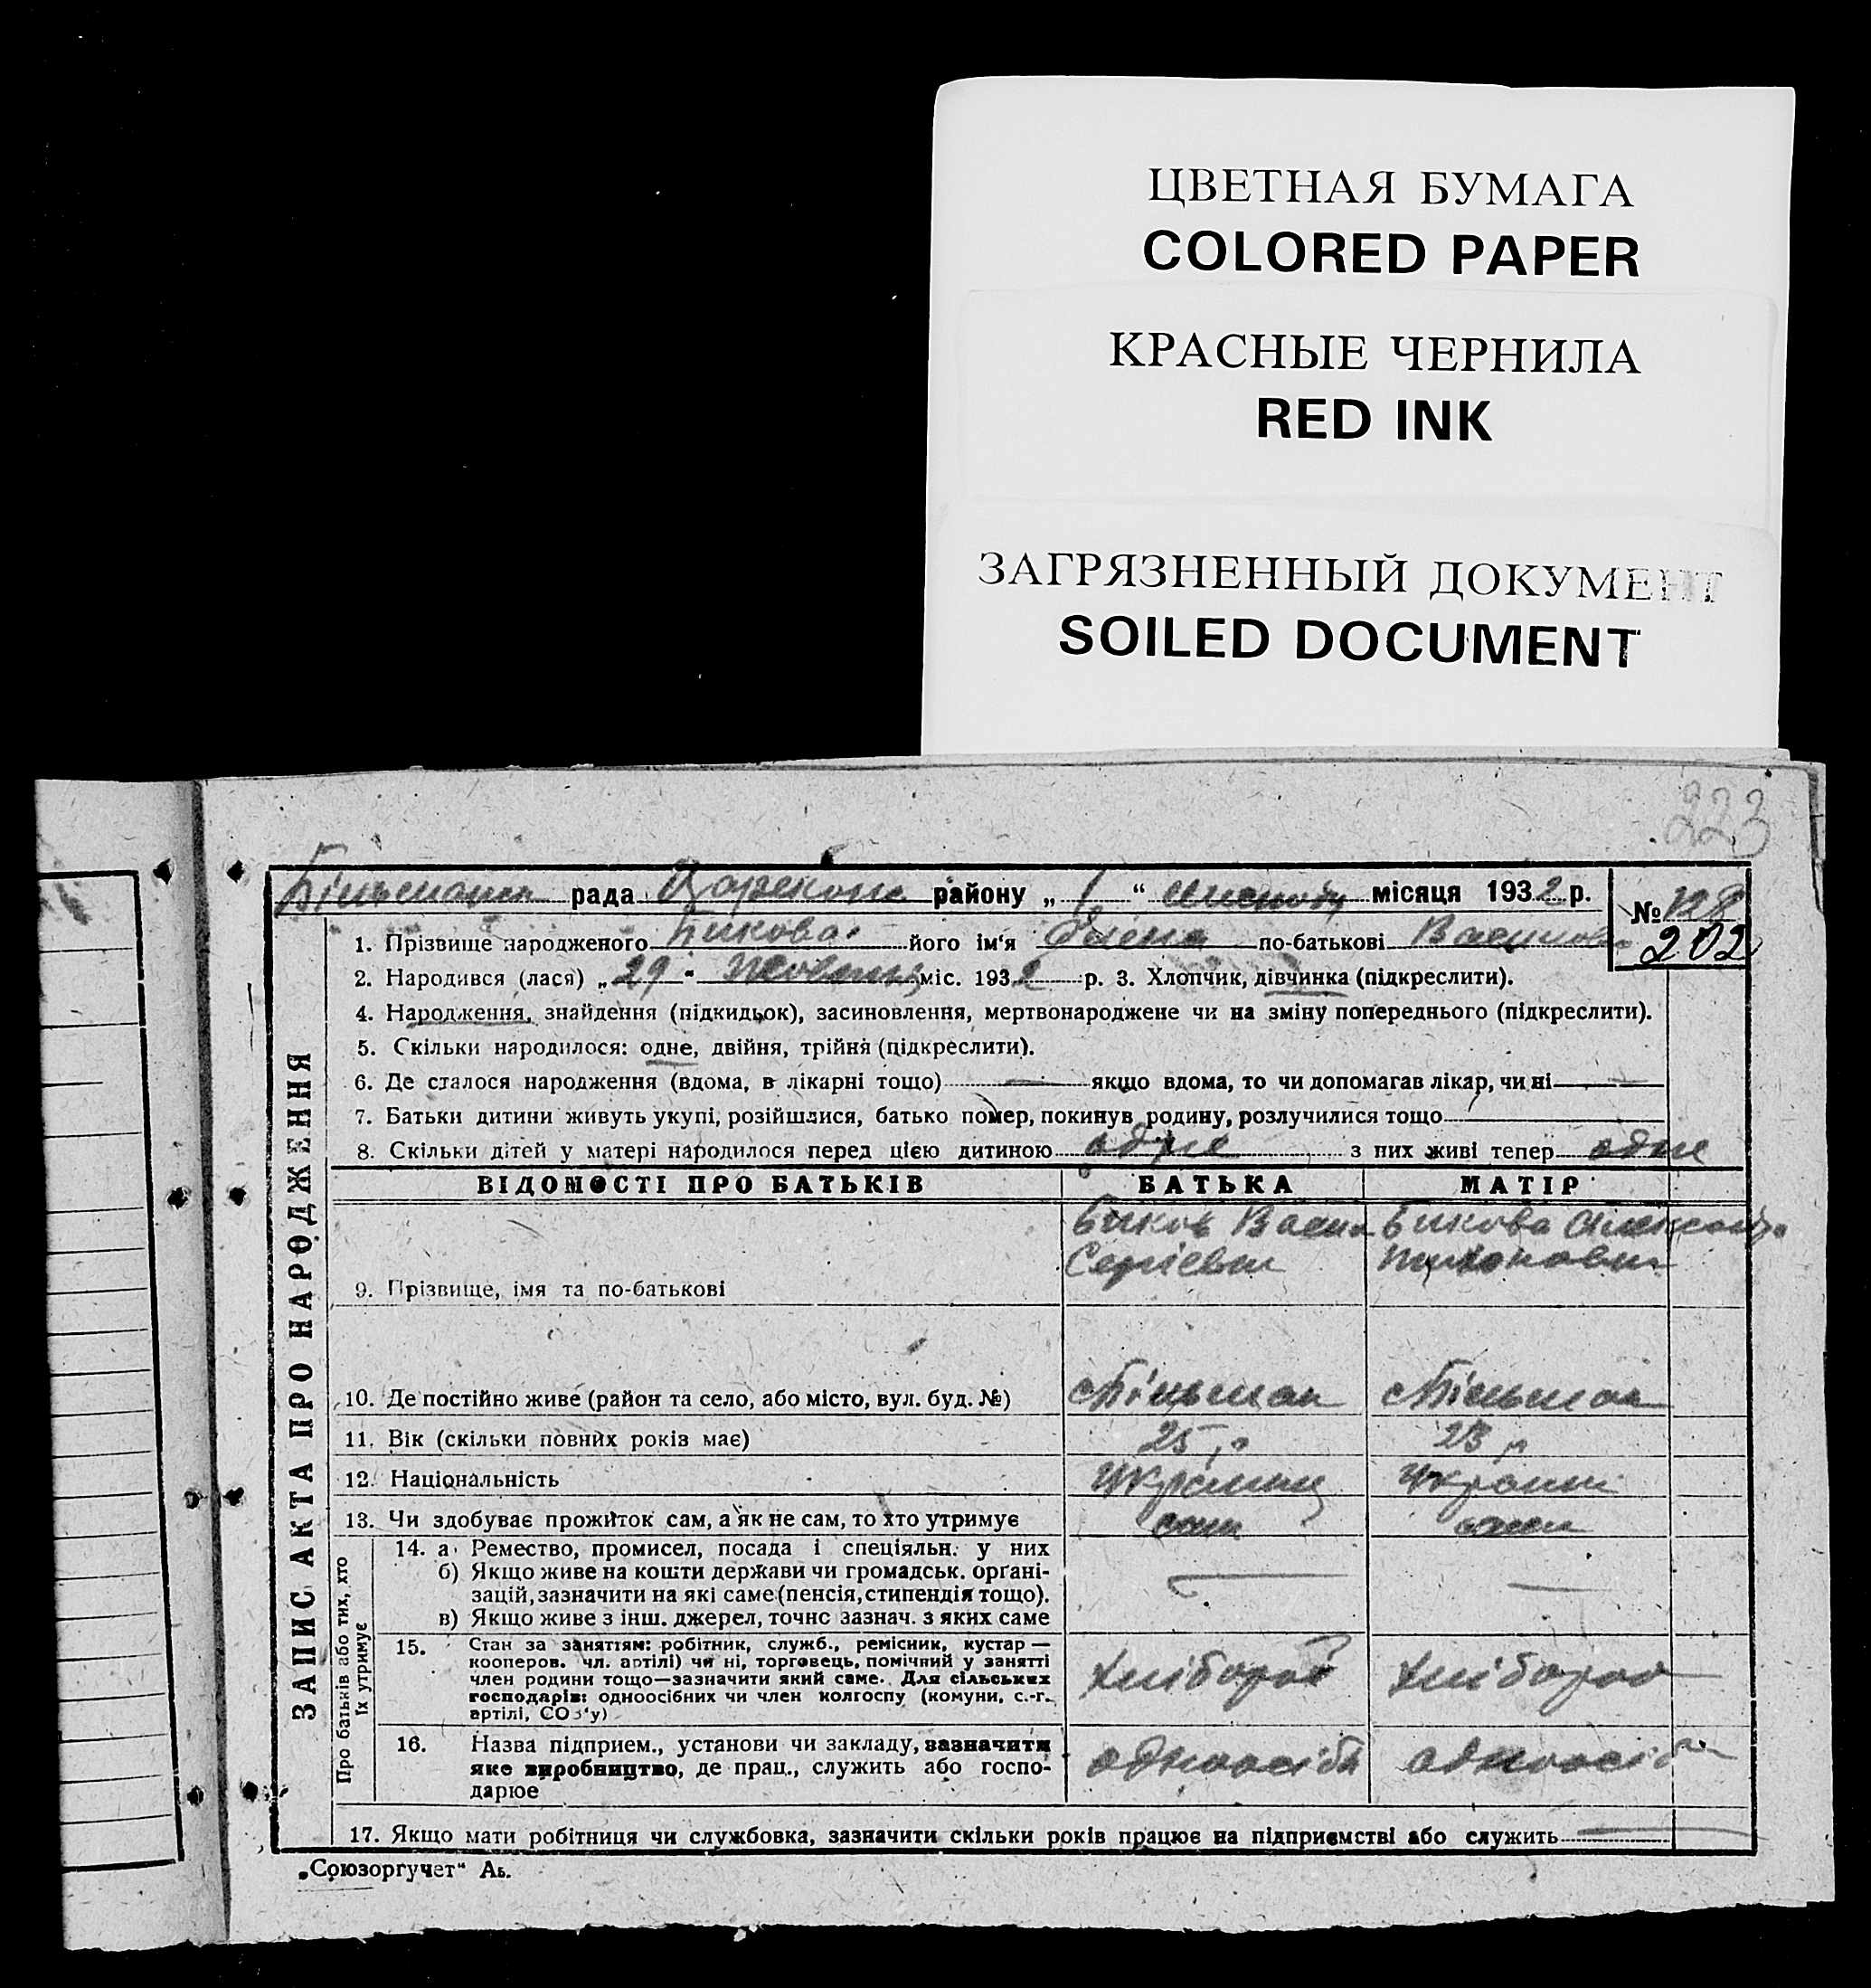 ЦВЕТНАЯ БУМАГА
COLORED PAPER
КРАСНЫЕ ЧЕРНИЛА
RED INK
ЗАГРЯЗНЕННЫЙ ДОКУМЕНТ
SOILED DOCUMENT
223
рада района району „ 1 “ місяця 1932 р.
№ 128
202
1. Прізвище народженого Бикова його ім'я по-батькові Василівна
2. Народився (лася) „ 29 " Жовтня міс. 1932 р. 3. Хлопчик, дівчинка (підкреслити).
4. Народження, знайдення (підкидьок), засиновлення, мертвонароджене чи на зміну попереднього (підкреслити).
5. Скільки народилося: одне, двійня, трійня (підкреслити).
6. Де сталося народження (вдома, в лікарні тощо) — якщо вдома, то чи допомагав лікар, чи ні —
7. Батьки дитини живуть укупі, розійшлися, батько помер, покинув родину, розлучилися тощо
8. Скільки дітей у матері народилося перед цією дитиною одне з них живі тепер одне
ЗАПИС АКТА ПРО НАРОДЖЕННЯ
ВІДОМОСТІ ПРО БАТЬКІВ БАТЬКА МАТІР
Биков Васил Бикова
Сергієвич
9. Прізвище, імя та по-батькові
10. Де постійно живе (район та село, або місто, вул. буд. №)
11. Вік (скільки повних років має) 25 р 23 р
12. Національність Україн Україн
13. Чи здобуває прожиток сам, а як не сам, то хто утримує сам сама
Про батьків або тих, хто їх утримує
14. а) Ремество, промисел, посада і спеціяльн. у них
б) Якщо живе на кошти держави чи громадськ. орґані-
зацій, зазначити на які саме (пенсія, стипендія тощо). — —
в) Якщо живе з інш. джерел, точно зазнач. з яких саме
15. Стан за заняттям: робітник, служб., ремісник, кустар —
кооперов. чл. артілі) чи ні, торговець, помічний у занятті
член родини тощо—зазначити який саме. Для сільських
господарів: одноосібних чи член колгоспу (комуни, с.-г.
артілі, СОЗ'у)
хлібороб хлібороб
16. Назва підприєм., установи чи закладу, зазначити
яке виробництво, де прац., служить або госпо-
дарює
одноосібн одноосібн
17. Якщо мати робітниця чи службовка, зазначити скільки років працює на підприємстві або служить
„Союзоргучет“ Аь.